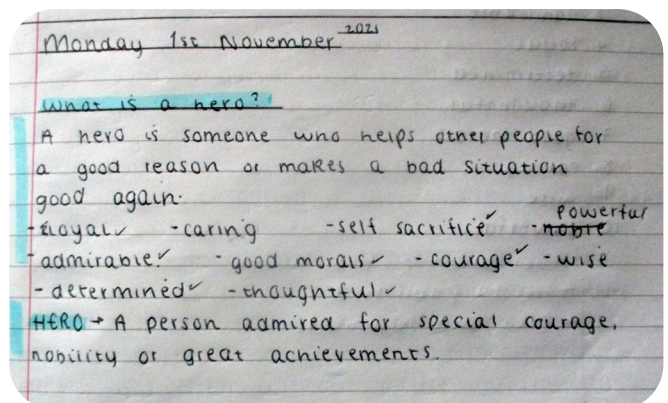 Monday 1st November 2021
What is a hero?
A hero is someone who helps other people for
a good reason or makes a bad situation
good again.
powerful
-loyal✓ -caring -self sacrifice✓ -noble
-admirable✓ -good morals✓ -courage✓ -wise
-determined✓ -thoughtful✓
HERO → A person admired for special courage,
nobility or great achievements.